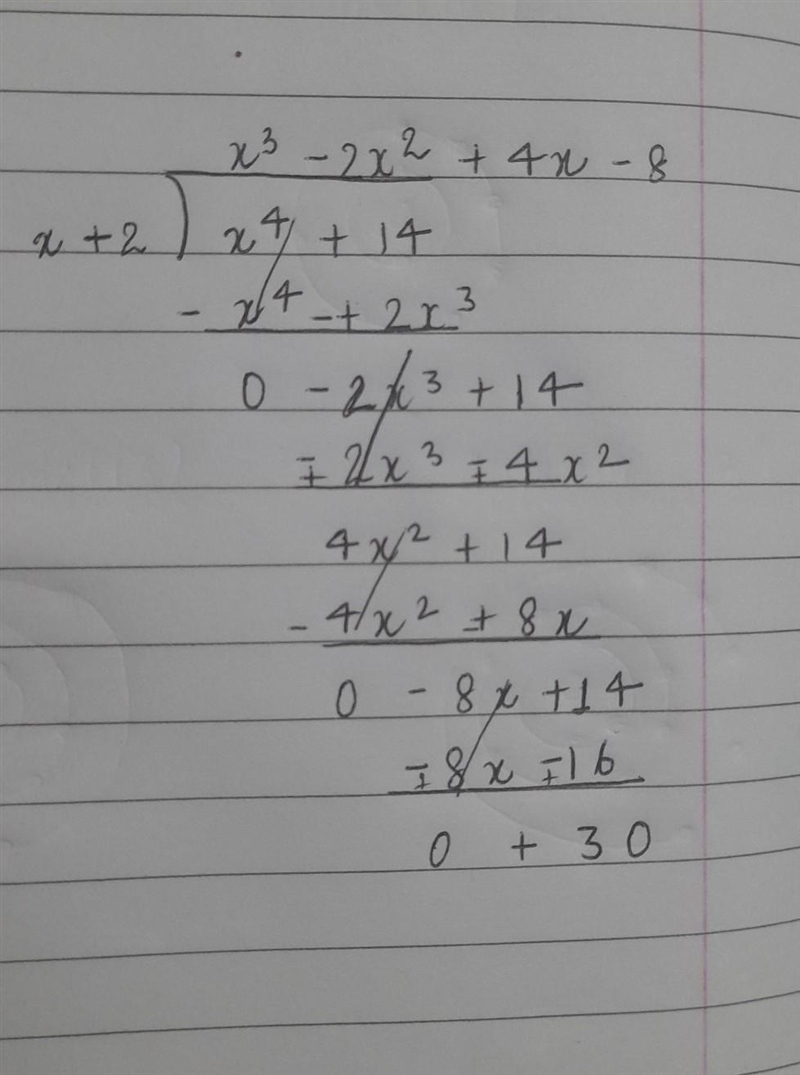 x³ - 2x² + 4x - 8
x + 2 ) x⁴ + 14
- x⁴ -+ 2x³
0 - 2x³ + 14
∓ 2x³ ∓ 4x²
4x² + 14
- 4x² + 8x
0 - 8x + 14
∓ 8x ∓ 16
0 + 30